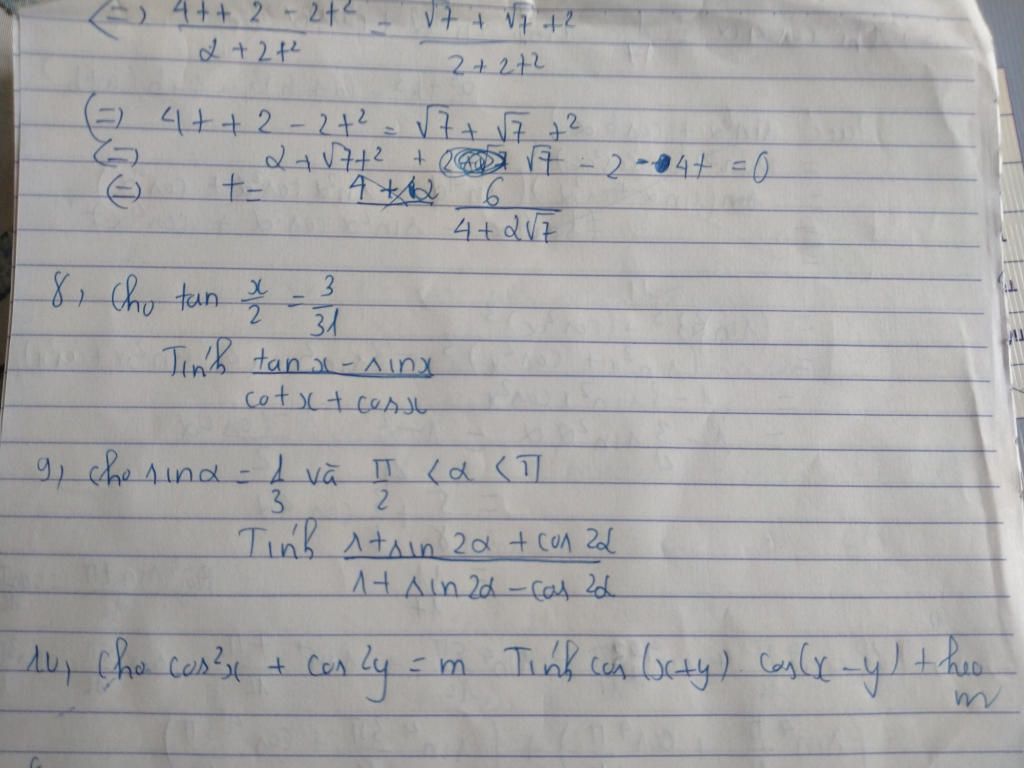 (=) 4t + 2 - 2t² / 2 + 2t² = √7 + √7 t² / 2 + 2t²
(=) 4t + 2 - 2t² = √7 + √7 t²
(=) 2 + √7t² + √7 - 2 - 4t = 0
(=) t = 6 / 4 + 2√7
8, Cho tan x/2 = 3/31
Tính tanx - sinx / cotx + cosx
9, Cho sinα = 1/3 và π/2 < α < π
Tính 1 + sin 2α + cos 2α / 1 + sin 2α - cos 2α
10, Cho cos²x + cos²y = m Tính cos (x+y). cos(x - y) theo
m